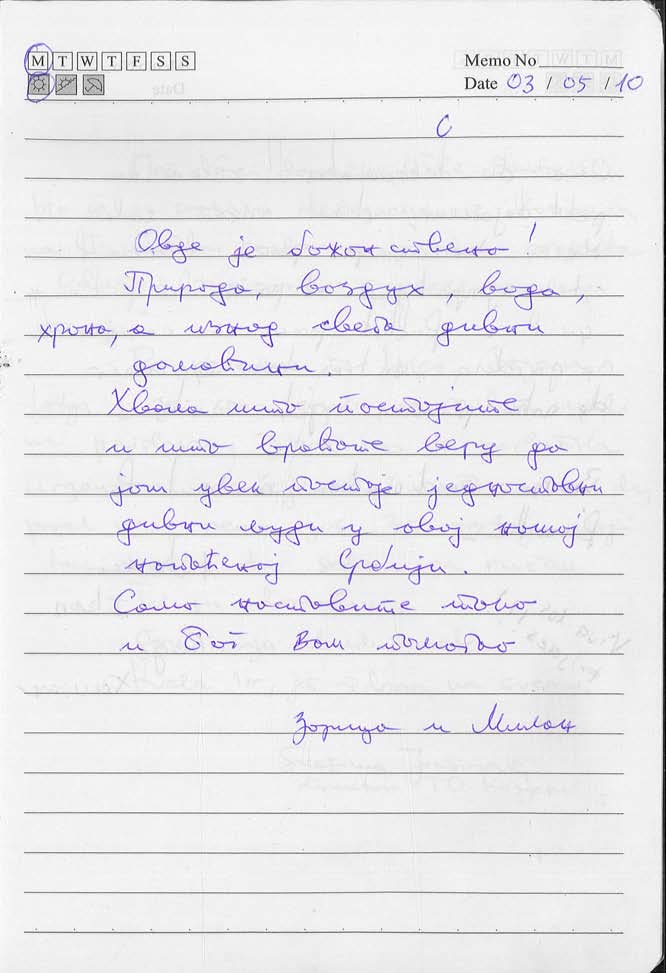 M T W T F S S
Memo No
Date 03 / 05 / 10
Овде је божанствено!
Природа, воздух, вода,
храна, а изнад света дивни
домаћини.
Хвала што постојите
и што враћате веру да
још увек постоје једноставни
дивни људи у овој нашој
напаћеној Србији.
Само наставите тако
и Бог Вам помогао
Зорица и Милан